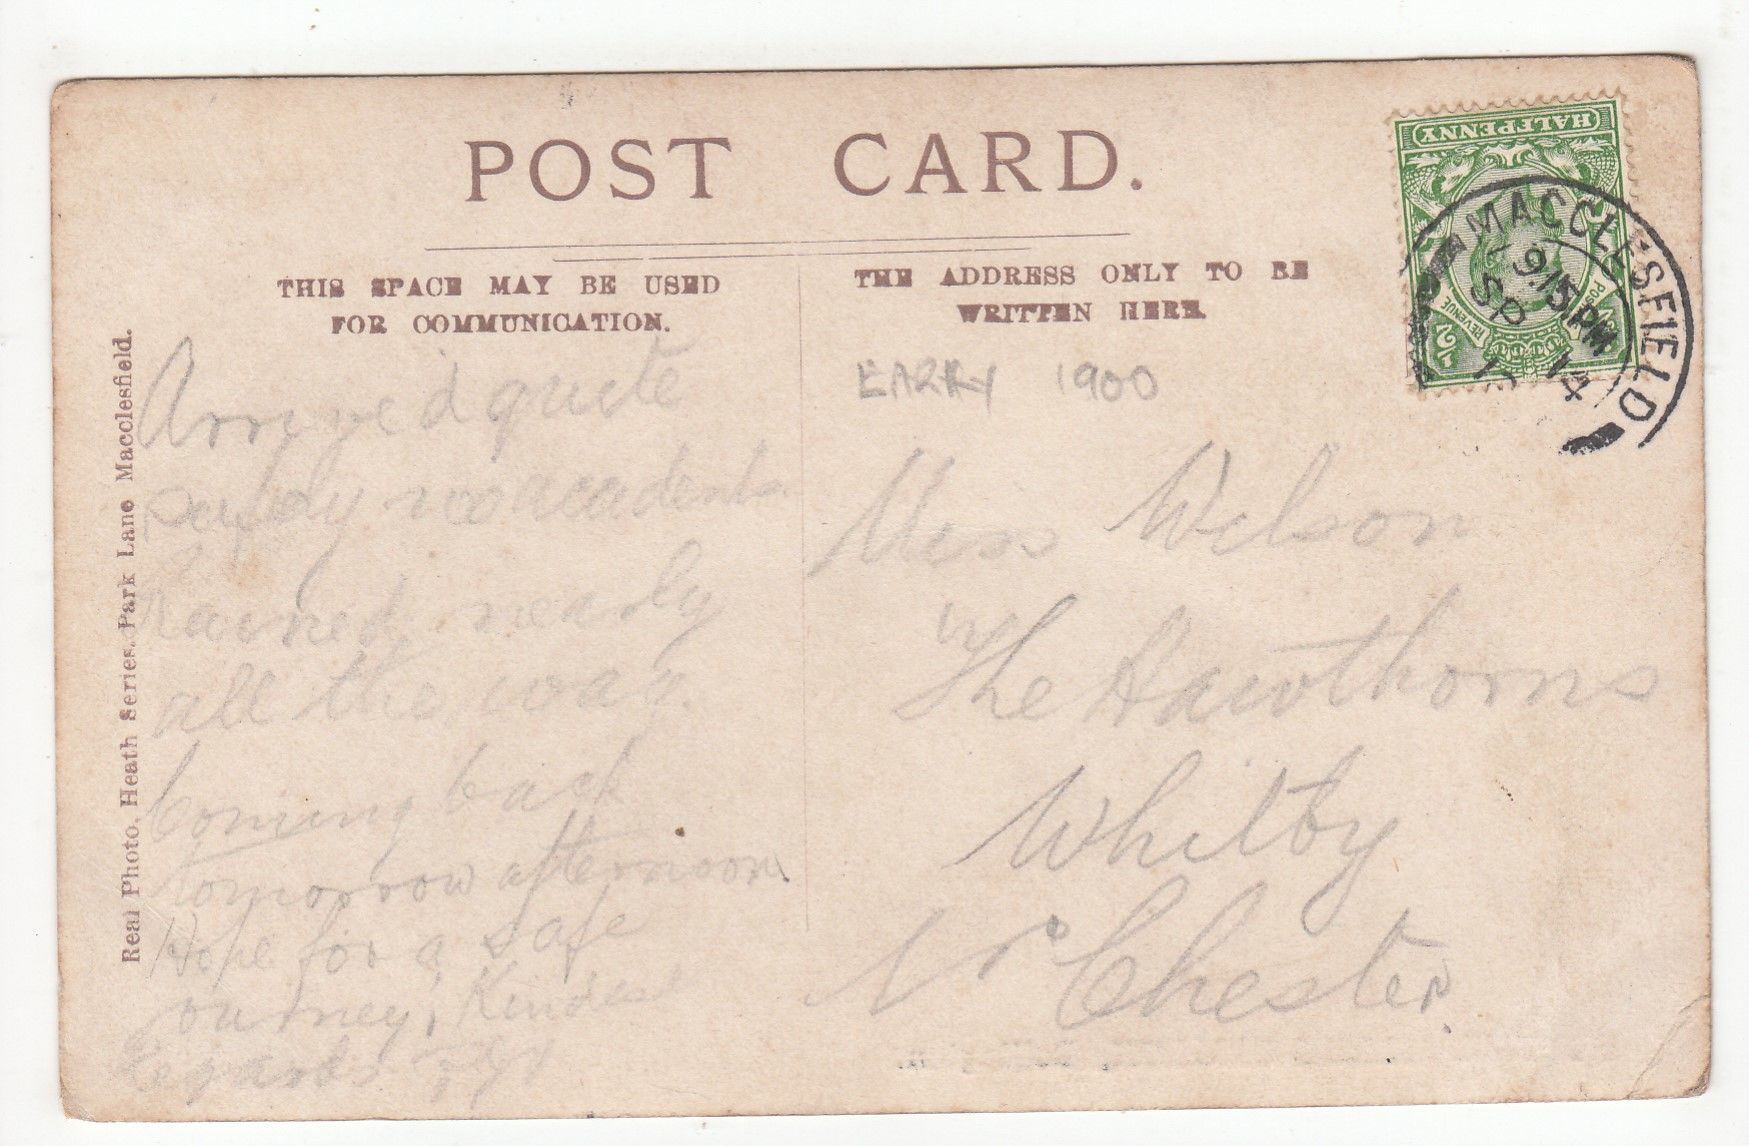 POST CARD.
THIS SPACE MAY BE USED
FOR COMMUNICATION.
THE ADDRESS ONLY TO BE
WRITTEN HERE.
HALFPENNY
POSTAGE
REVENUE
1/2
MACCLESFIELD
9.15 PM
SP
14
Real Photo. Heath Series. Park Lane Macclesfield.
Arrived quite
safely no accidents
Rained nearly
all the way.
Coming back
tomorrow afternoon.
Hope for a safe
journey, Kindest
Regards
1900
Miss Wilson
The Hawthorns
Whitby
Nr Chester.